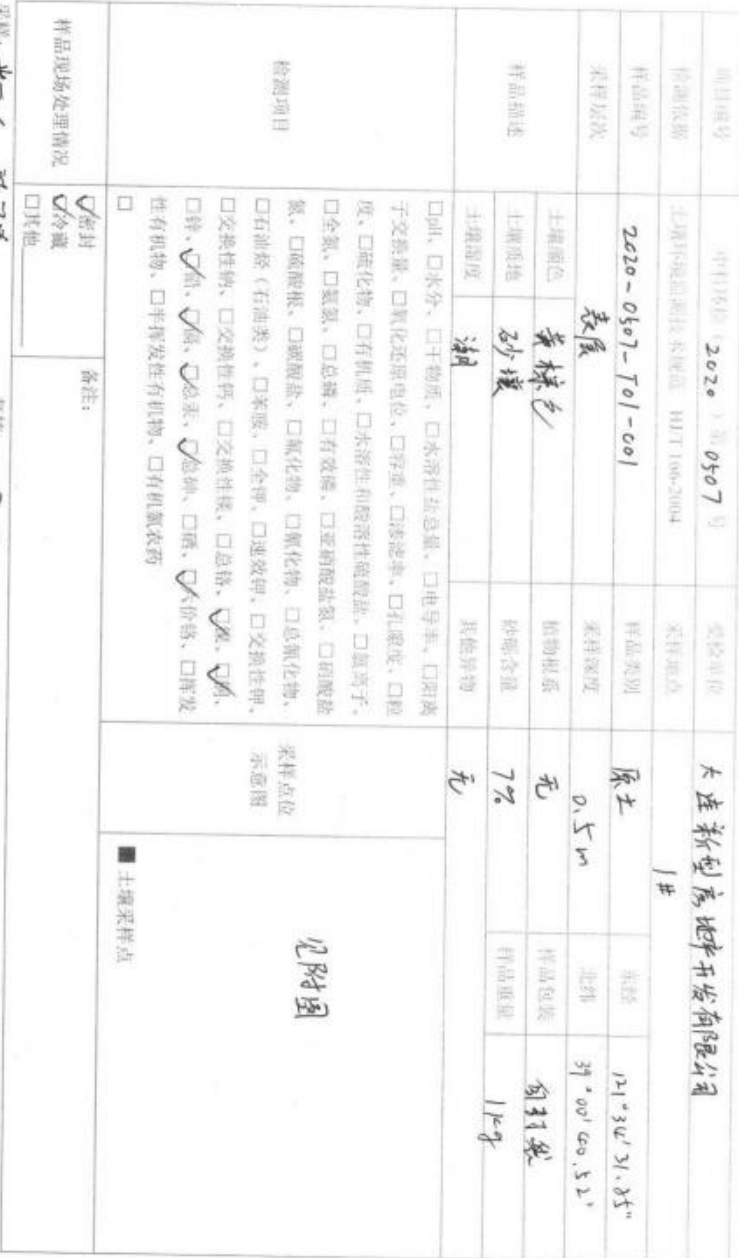 项目编号 中科质检（2020）第0507号 受检单位 大连新型房地产开发有限公司
检测依据 土壤环境监测技术规范 HJ/T 166-2004 采样地点 1#
样品编号 2020-0507-T01-001 样品类别 原土 东经 121°34'31.85"
采样层次 表层 采样深度 0.5m 北纬 39°00'40.52"
样品描述 土壤颜色 黄棕色 植物根系 无 样品包装 自封袋
土壤质地 砂壤 砂砾含量 7% 样品重量 1kg
土壤湿度 潮 其他异物 无
检测项目
□pH、□水分、□干物质、□水溶性盐总量、□电导率、□阳离
子交换量、□氧化还原电位、□容重、□渗滤率、□孔隙度、□粒
度、□硫化物、□有机质、□水溶性和酸溶性硫酸盐、□氯离子、
□全氮、□氨氮、□总磷、□有效磷、□亚硝酸盐氮、□硝酸盐
氮、□硫酸根、□碳酸盐、□氟化物、□氰化物、□总氰化物、
□石油烃（石油类）、□苯胺、□全钾、□速效钾、□交换性钾、
□交换性钠、□交换性钙、□交换性镁、□总铬、☑镍、☑铜、
□锌、☑铅、☑镉、☑总汞、☑总砷、□硒、☑六价铬、□挥发
性有机物、□半挥发性有机物、□有机氯农药
□
采样点位
示意图
见附图
■ 土壤采样点
样品现场处理情况
☑密封
☑冷藏
□其他
备注：
采样：